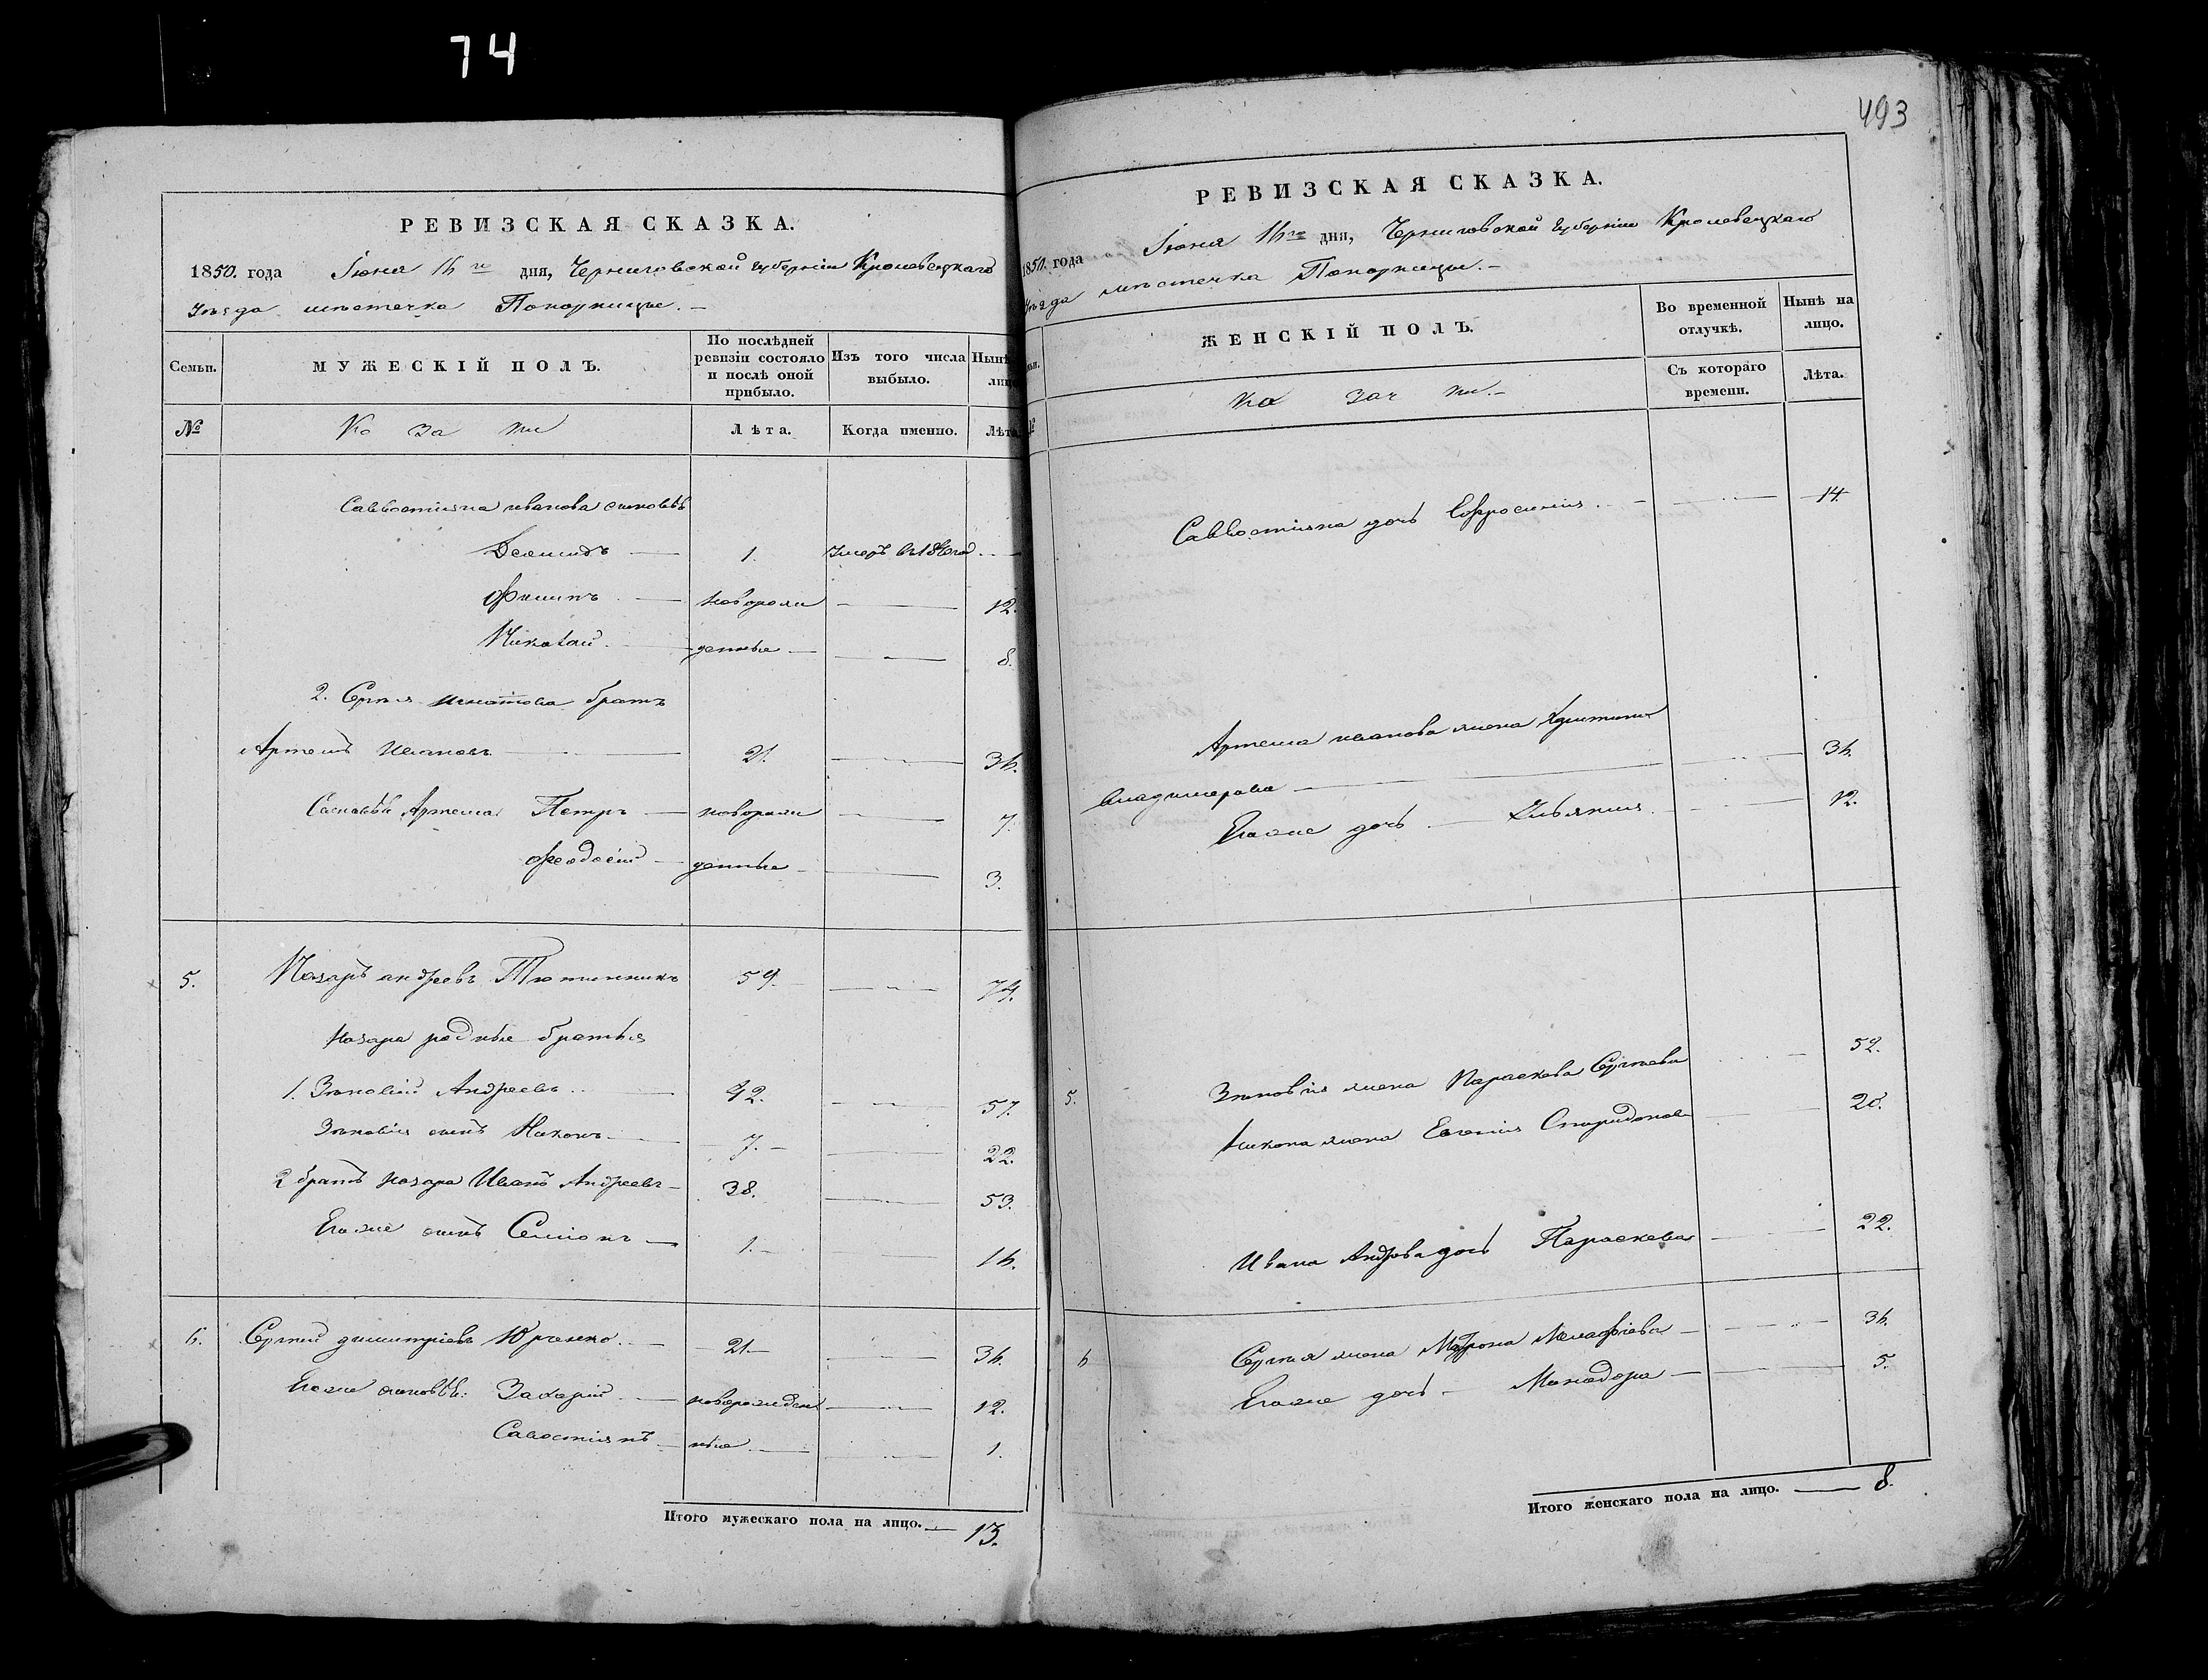 74
РЕВИЗСКАЯ СКАЗКА.
1850. года Іюня 16го дня, Черниговской губерніи Кролевецкаго
Уѣзда мѣстечка Понорницы. –
Семьи.
МУЖЕСКІЙ ПОЛЪ.
По послѣдней ревизіи состояло и послѣ оной прибыло.
Изъ того числа выбыло.
Нынѣ лицо
№
Ко за ки
Лѣта.
Когда именно.
Лѣта
Савостіяна иванова сыновья
Демидъ — 1. Умеръ въ
Филипъ — новорож — 12.
Николай. — денные — 8.
2. Сергея брать
Артемъ Ивановъ — 21. — 36.
Сыновья Артема Петръ — новорож — 7.
Феодосій — денные — 3.
5. Назаръ андреевъ Тютинникъ 59. — 74.
Назара родные братья
1. Зѣновій Андреевъ — 42. — 57.
Зѣновія сынъ Никонъ — 7. — 22.
2 братъ Назара Иванъ Андреевъ — 38. — 53.
Егоже сынъ Семіонъ — 1. — 16.
6. Сергей димитріевъ Юрченко. — 21. — 36.
Егоже сыновья: Захарій — новорожден — 12.
Савостіянъ — ные — 1.
Итого мужескаго пола на лицо. — 13.
493
РЕВИЗСКАЯ СКАЗКА.
1850. года Іюня 16го дня, Черниговской губерніи Кролевецкаго
Уѣзда мѣстечка Понорницы. –
ЖЕНСКІЙ ПОЛЪ.
Во временной отлучкѣ.
Нынѣ на лицо.
№
Ко зач ки. –
Съ котораго времени.
Лѣта.
Савостіяна дочь Ефросинія. — 14
Артема иванова жена Христина
владимерова — 36.
Егоже дочь — Ульяния. — 12.
5. Зѣновія жена Параскева Сергеева 52.
Никона жена Евгенія Спиридонова 20.
Ивана Андреева дочь Параскева — 22.
6 Сергея жена Матрона — 36.
Егоже дочь — Минадора — 5.
Итого женскаго пола на лицо. — 8.